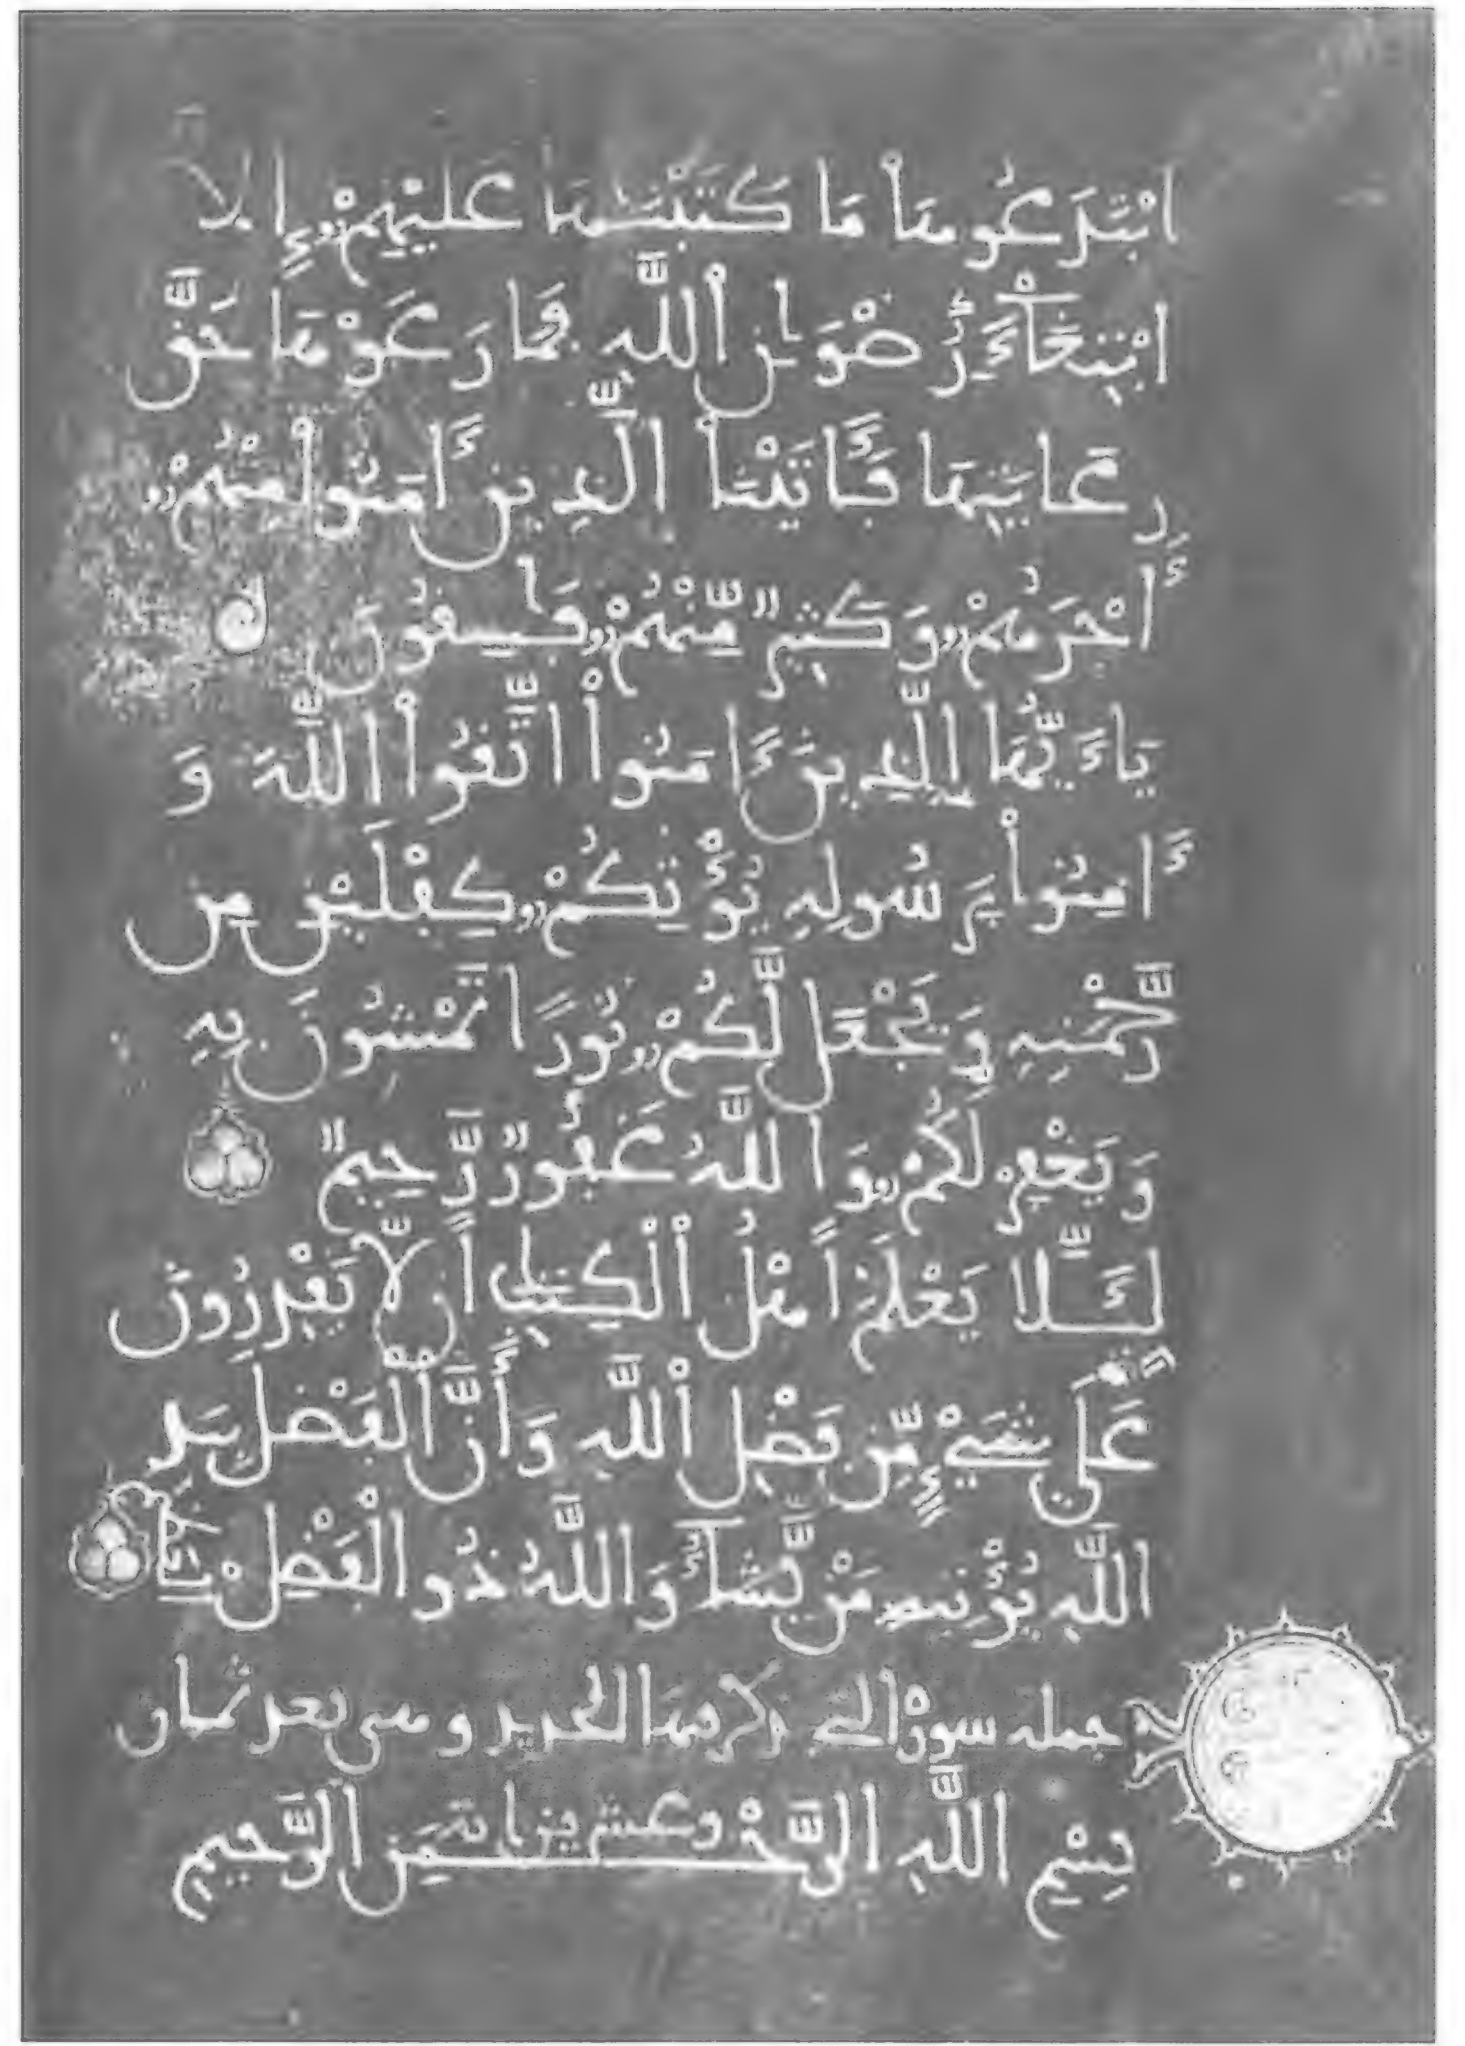 ابْتَدَعُوهَا مَا كَتَبْنَـٰهَا عَلَيْهِمْۥ إِلَّا
ابْتِغَآءَ رِضْوَٰنِ اللَّهِ فَمَا رَعَوْهَا حَقَّ
رِعَايَتِهَا فَـَٔاتَيْنَا الَّذِينَ ءَامَنُوا مِنْهُمْۥ
أَجْرَهُمْۥ وَكَثِيرٌ مِّنْهُمْۥ فَـٰسِقُونَ
يَـٰأَيُّهَا الَّذِينَ ءَامَنُوا اتَّقُوا اللَّهَ وَ
ءَامِنُوا بِرَسُولِهِ يُؤْتِكُمْۥ كِفْلَيْنِ مِن
رَّحْمَتِهِ وَيَجْعَل لَّكُمْۥ نُورًا تَمْشُونَ بِهِ
وَيَغْفِرْ لَكُمْۥ وَاللَّهُ غَفُورٌ رَّحِيمٌ
لِّئَلَّا يَعْلَمَ أَهْلُ الْكِتَـٰبِ أَن لَّا يَقْدِرُونَ
عَلَىٰ شَيْءٍ مِّن فَضْلِ اللَّهِ وَأَنَّ الْفَضْلَ بِيَدِ
اللَّهِ يُؤْتِيهِ مَنْ يَّشَآءُ وَاللَّهُ ذُو الْفَضْلِ
جملة سورة التي ذكر فيها الحديد وهي بعد ثمان
وعشرين اية
بِسْمِ اللَّهِ الرَّحْمَـٰنِ الرَّحِيمِ